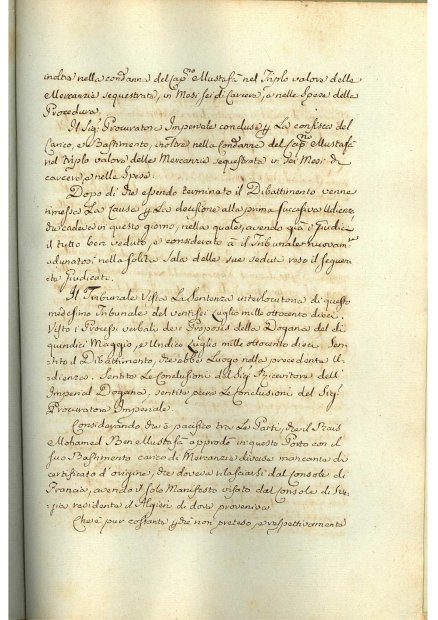 inoltre nella condanna del Cap.no Mustafà nel Triplo valore delle
Mercanzie sequestrate, in Mesi sei di Carcere, e nelle Spese della
Procedura.
Il Sig.r Procuratore Imperiale concluse p La confisca del
Carico, e Bastimento, inoltre nella Condanna del Cap.no Mustafà
nel triplo valore delle Mercanzie sequestrate in Sei Mesi di
carcere, e nelle Spese.
Dopo di che essendo terminato il Dibattimento venne
rimessa La Causa p La decisione alla prima successiva Udienza,
che cadeva in questo giorno, nella quale, avendo già i Giudici
il tutto ben veduto, e considerato si è il Tribunale nuovam.te
adunato nella solita Sala delle sue sedute reso il seguen-
te Giudicato.
Il Tribunale Vista La Sentenza interlocutoria di questo
medesimo Tribunale del ventisei Luglio mille ottocento dieci.
Visto i Processi verbali, dei Preposés della Dogana del dì
quindici Maggio, e Undici Luglio mille ottocento dieci. Sen-
tito il Dibattimento, che ebbe Luogo nella precedente U-
dienza. Sentite Le Conclusioni del Sig.r Ricevitore dell'
Imperial Dogana, sentite pure Le Conclusioni del Sig.r
Procuratore Imperiale.
Considerando che è pacifico tra Le Parti, che il Rais
Mohamed Ben Mustafà approdò in questo Porto con il
suo Bastimento carico di Mercanzie diverse mancante di
certificato d'origine, che doveva rilasciarsi dal Console di
Francia, avendo il solo Manifesto visato dal Console di
residente d'Algieri di dove proveniva.
Che è pur costante p che non preteso, e rispettivamente